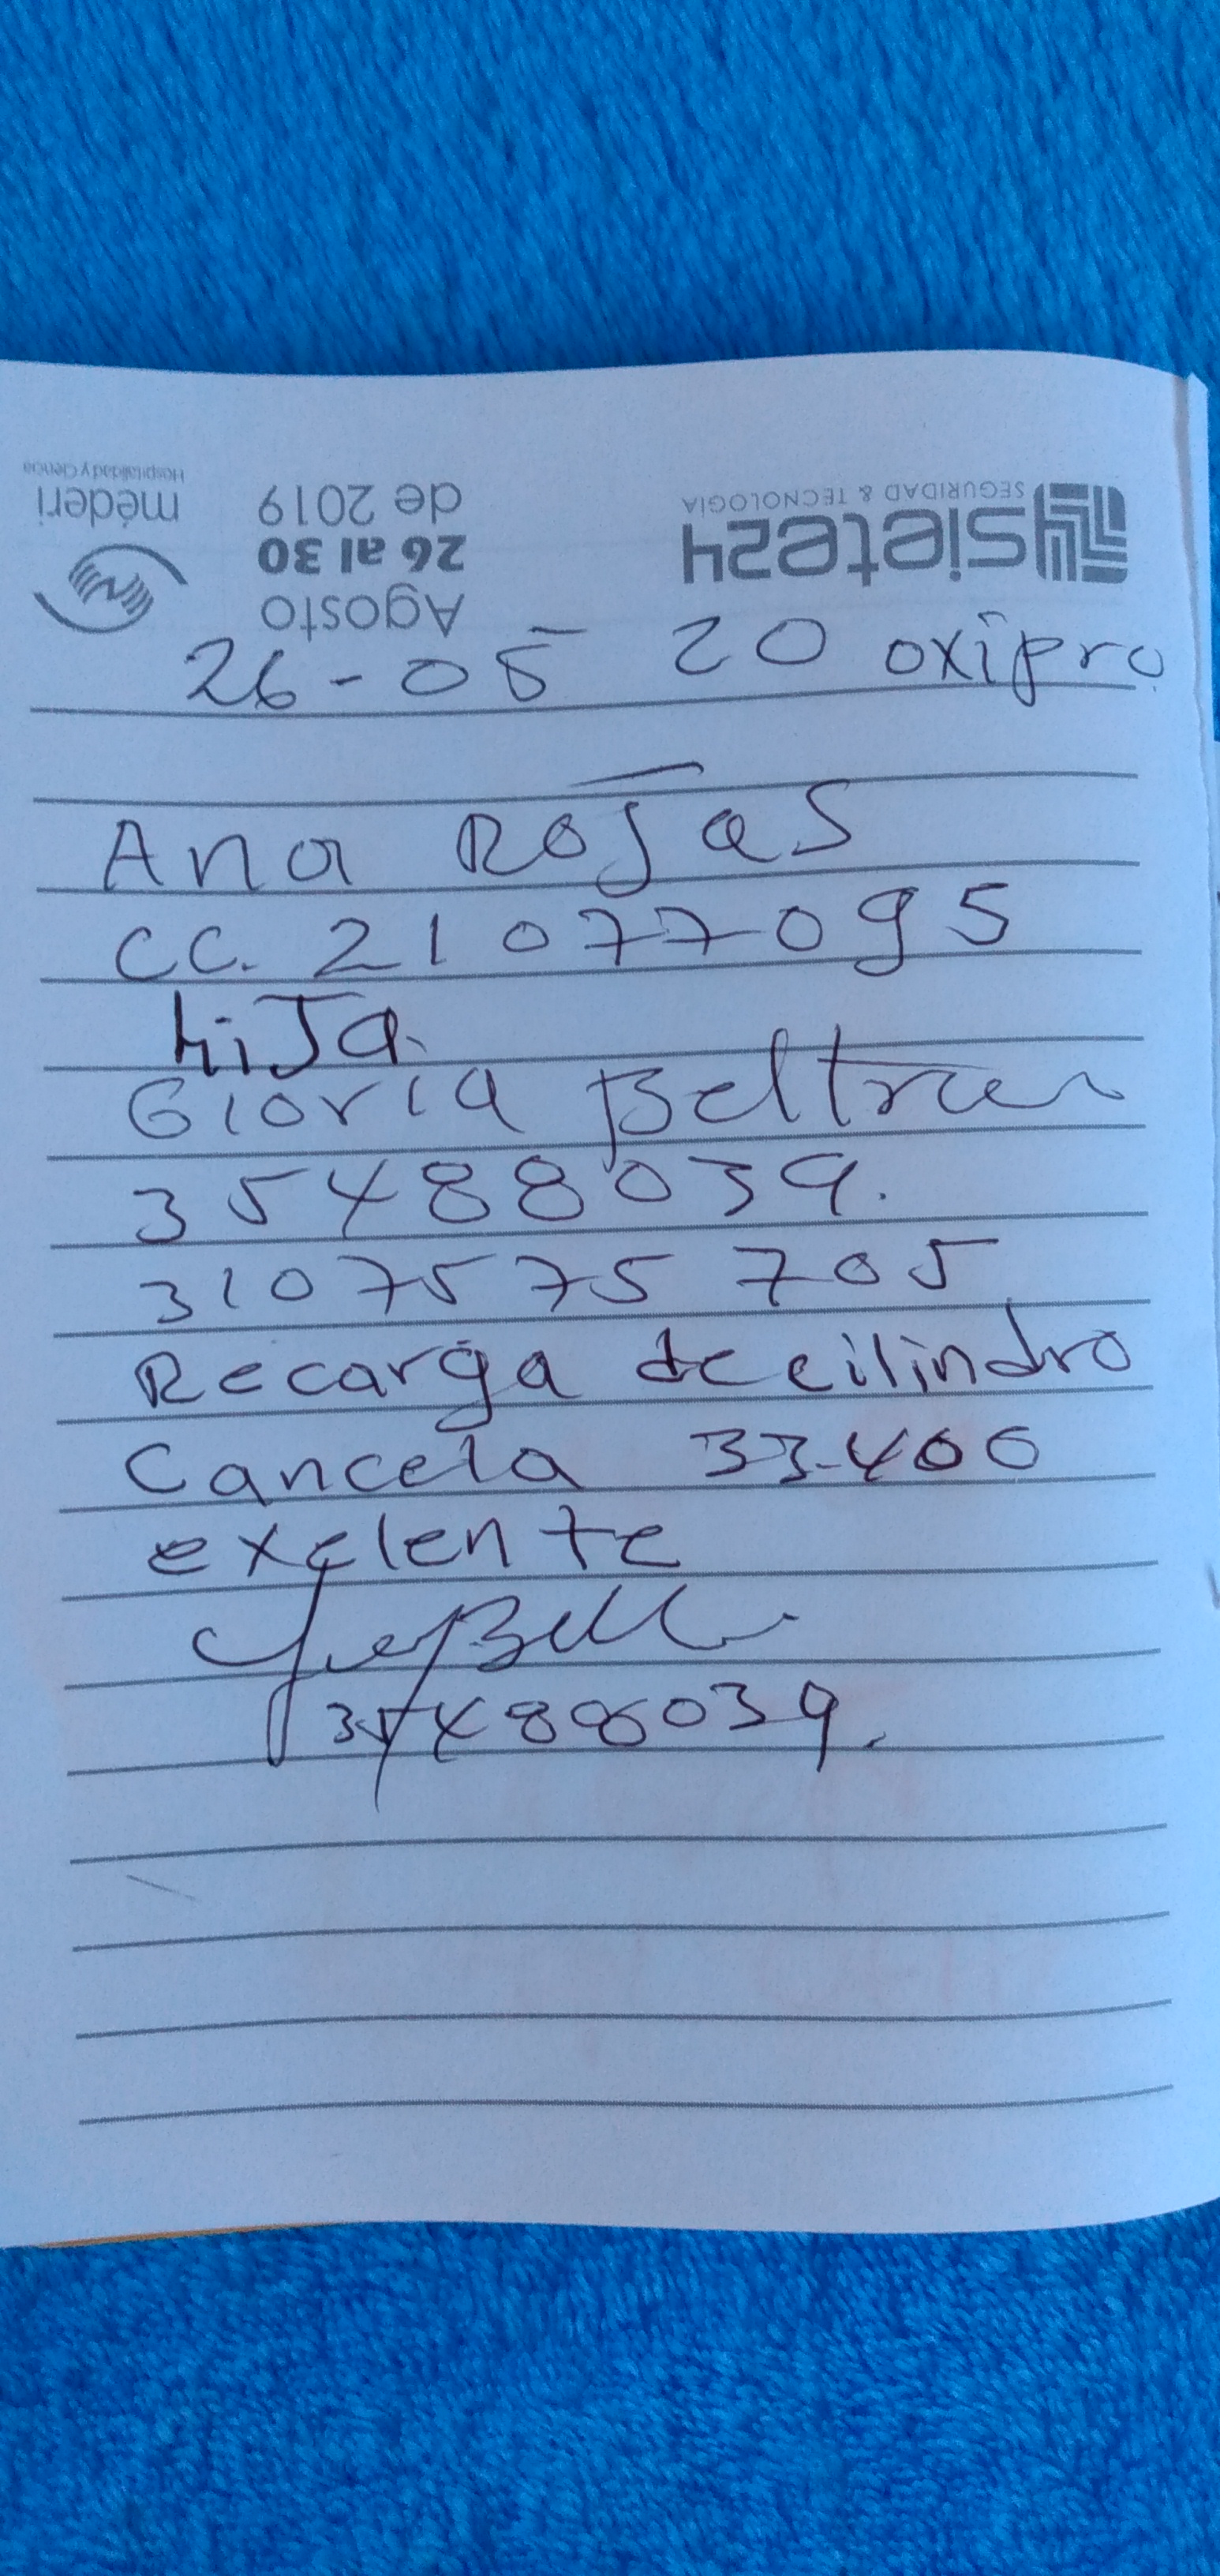 siete24
SEGURIDAD & TECNOLOGÍA
Agosto
26 al 30
de 2019
méderi
Hospitalidad y Ciencia
26-05 20 oxipro
Ana Rojas
CC. 21077095
hiJa
Gloria Beltran
35488039.
3107575 705
Recarga de cilindro
Cancela 33.400
exelente
35488039.